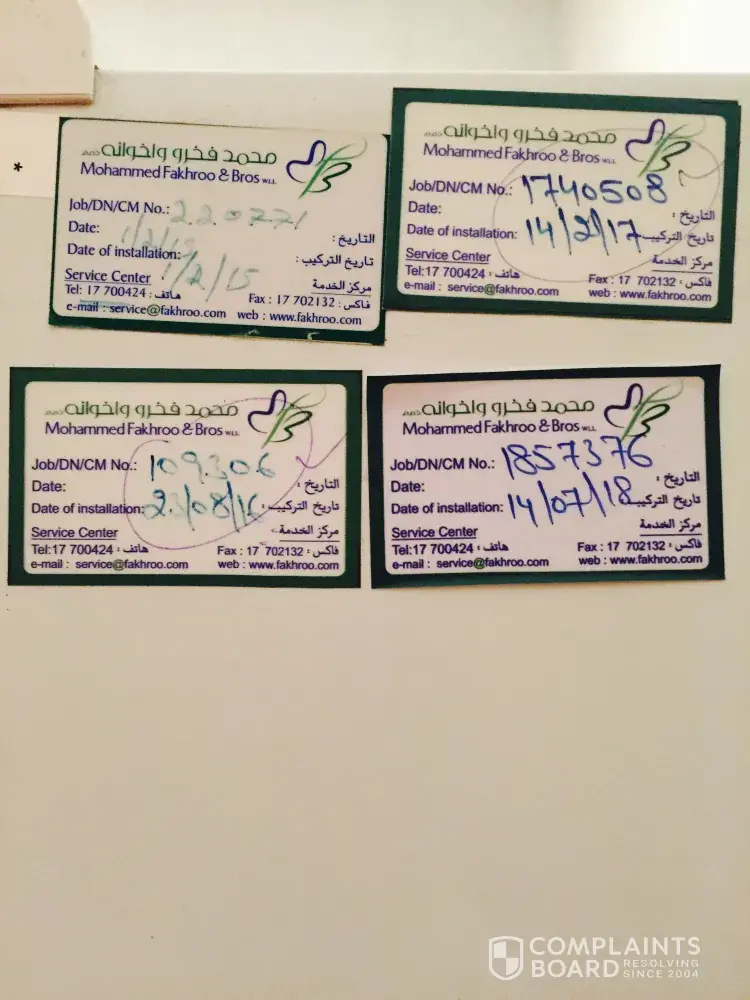 *
محمد فخرو واخوانه ذ.م.م
Mohammed Fakhroo & Bros W.L.L.
Job/DN/CM No.: 220771
Date: 1/2/15 التاريخ :
Date of installation: 1/2/15 تاريخ التركيب :
Service Center مركز الخدمة
Tel: 17 700424 : هاتف Fax : 17 702132 : فاكس
e-mail : service@fakhroo.com web : www.fakhroo.com
محمد فخرو واخوانه ذ.م.م
Mohammed Fakhroo & Bros W.L.L.
Job/DN/CM No.: 1740508
Date: التاريخ :
Date of installation: 14/2/17 تاريخ التركيب :
Service Center مركز الخدمة
Tel:17 700424 : هاتف Fax : 17 702132 : فاكس
e-mail : service@fakhroo.com web : www.fakhroo.com
محمد فخرو واخوانه ذ.م.م
Mohammed Fakhroo & Bros W.L.L.
Job/DN/CM No.: 109306
Date: التاريخ :
Date of installation: 23/08/16 تاريخ التركيب :
Service Center مركز الخدمة
Tel:17 700424 : هاتف Fax : 17 702132 : فاكس
e-mail : service@fakhroo.com web : www.fakhroo.com
محمد فخرو واخوانه ذ.م.م
Mohammed Fakhroo & Bros W.L.L.
Job/DN/CM No.: 1857376
Date: التاريخ :
Date of installation: 14/07/18 تاريخ التركيب :
Service Center مركز الخدمة
Tel:17 700424 : هاتف Fax : 17 702132 : فاكس
e-mail : service@fakhroo.com web : www.fakhroo.com
COMPLAINTS
BOARD RESOLVING SINCE 2004